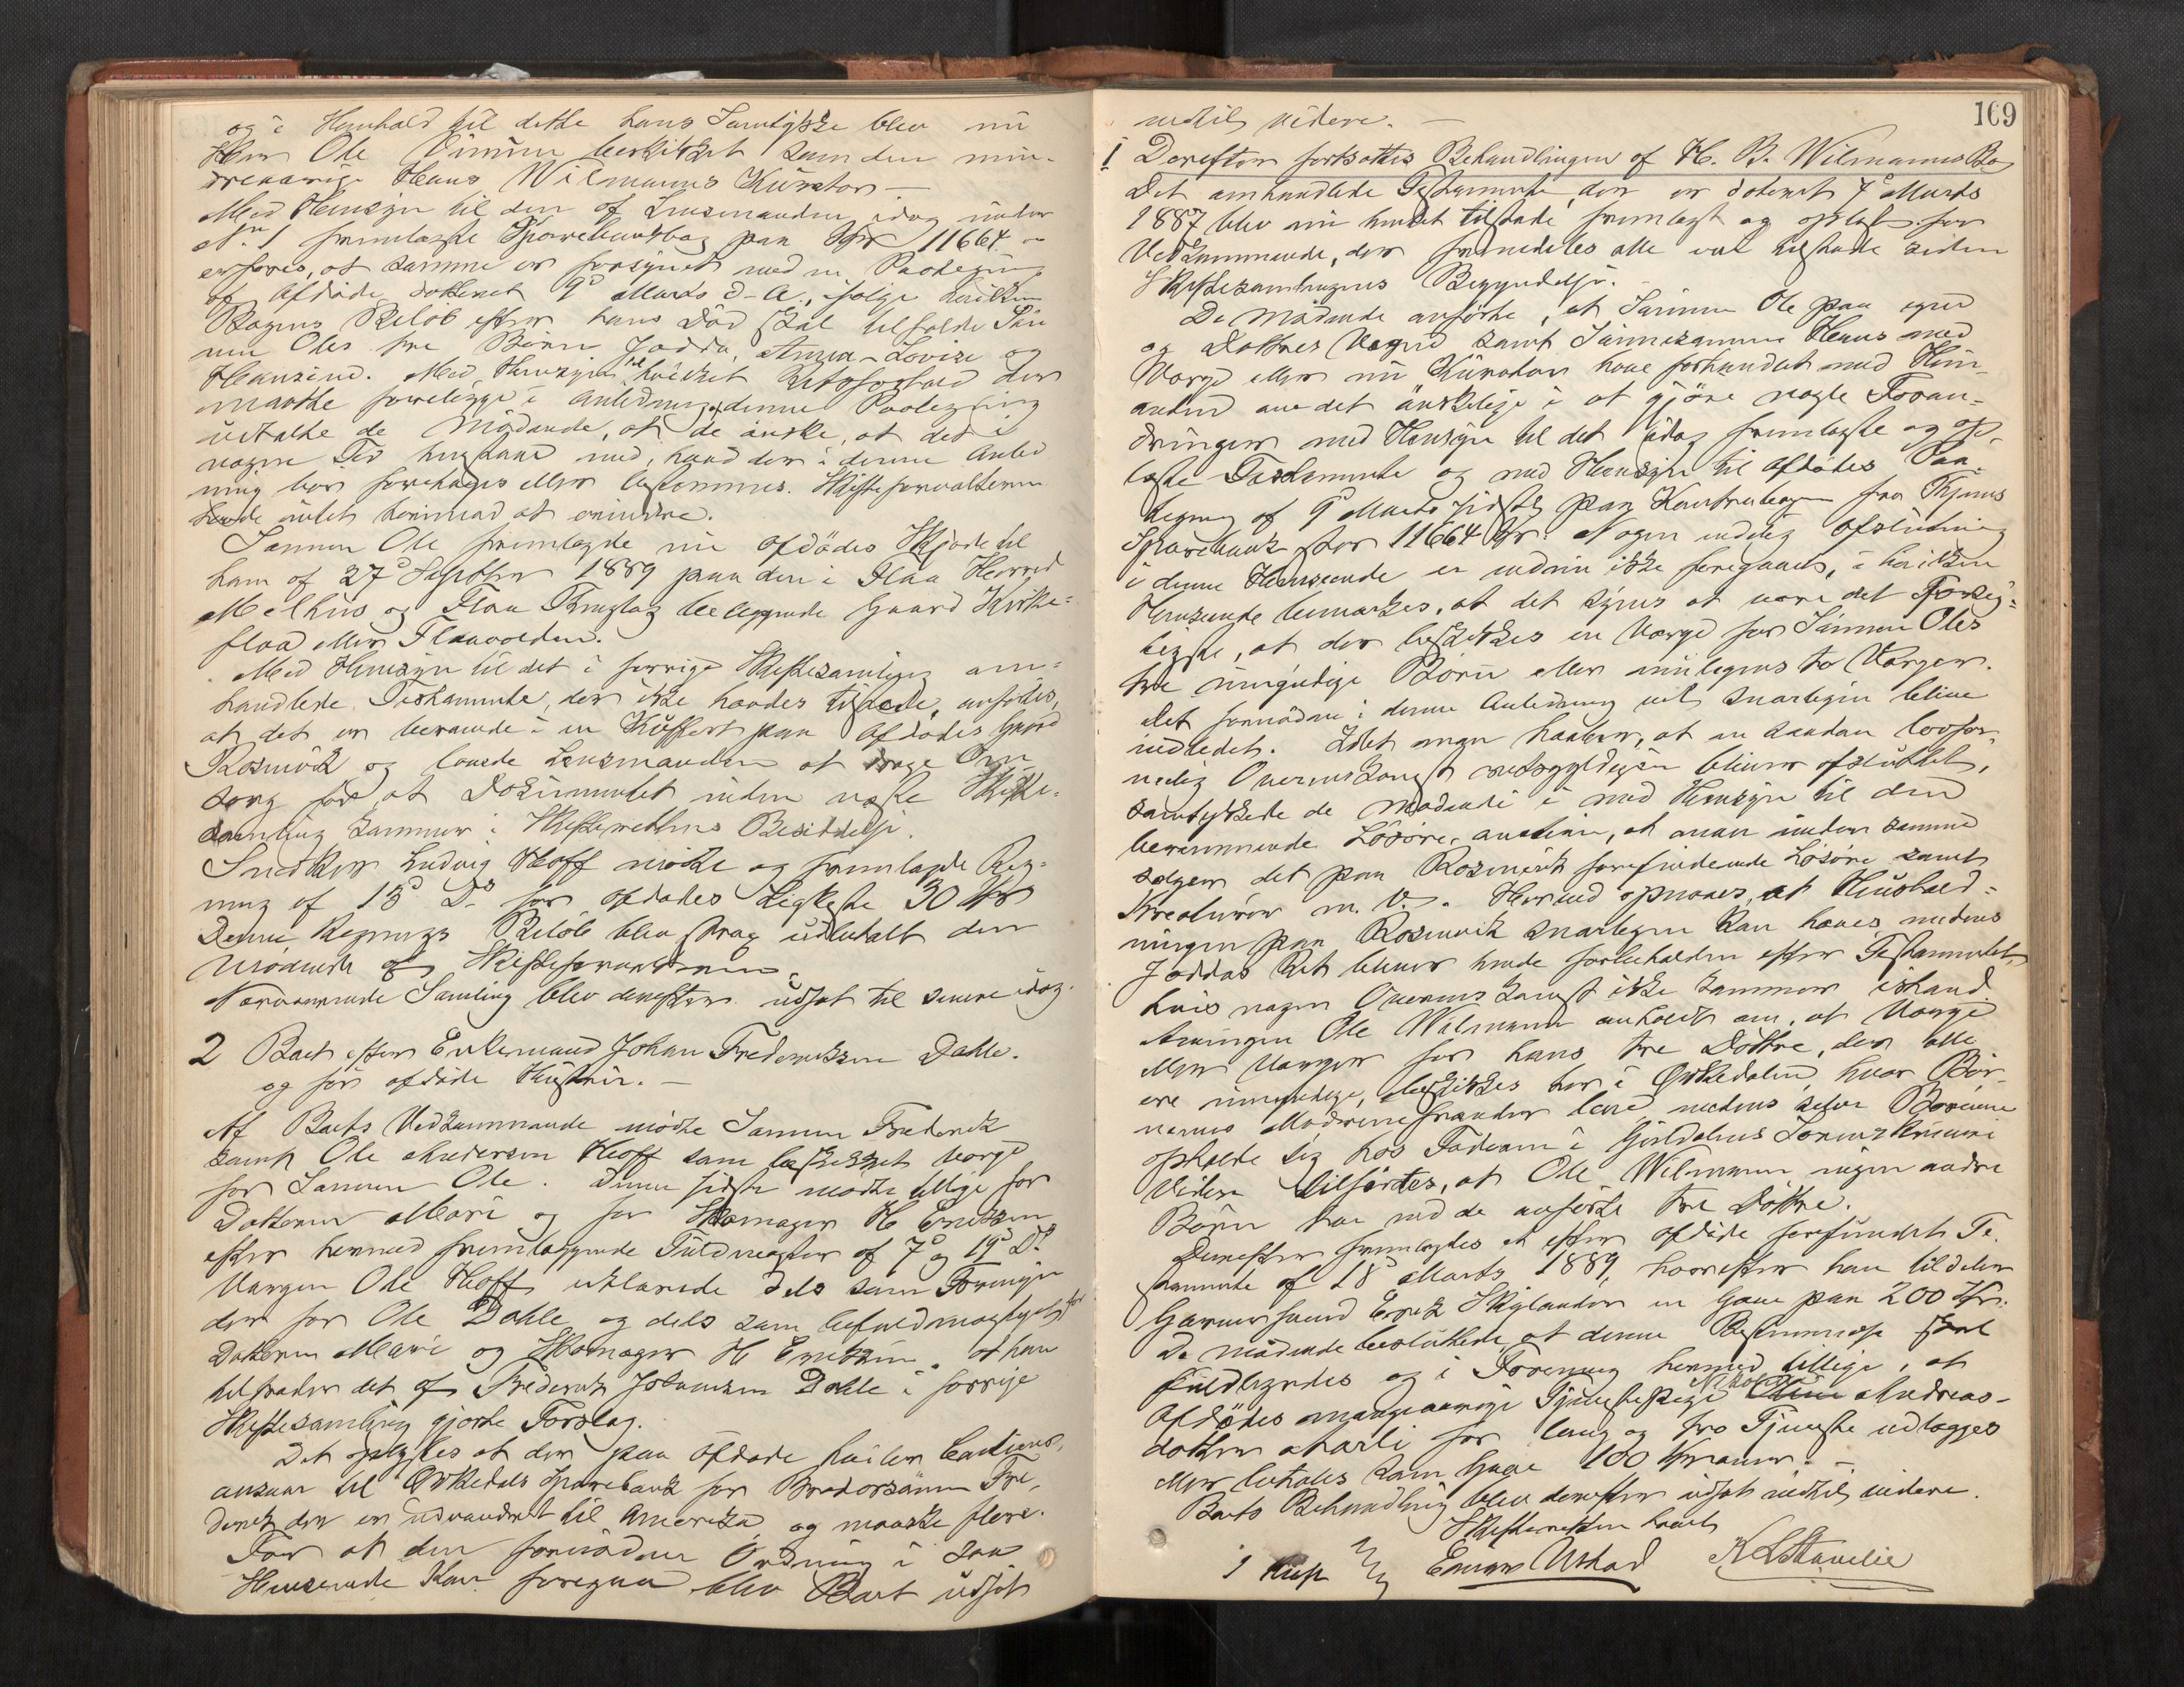 og i Henhold til dette hans Samtykke blev nu
Herr Ole beskikket som den min-
dreaarige Hans Wilmanns Kurator —
Med Hensyn til den af Lensmanden idag under
N. 1 fremlagte Sparebankbog paa Kr 11664 -
erfares, at samme er forsynet med en Paategning
af Afdøde, dateret 9d Marts d. A., ifølge hvilken
Bogens Beløb efter hans Død skal tilfalde Søn
nen Oles tre Børn Jodda, Anna-Lovise og
Hansine. Med Hensyn til hvilket Retsforhold der
maatte foreligge i Anledning af denne Paategning
udtalte de Mødende, at de ønske, at det i
nogen Tid henstaar med, hvad der i denne Anled
ning bør foretages eller bestemmes. Skifteforvalteren
havde intet herimod at erindre.
Sønnen Ole fremlagde nu afdødes Skjøde til
ham af 27d Septbr 1889 paa den i Flaa Herred
Melhus og Flaa Thinglag beliggende Gaard Kirke-
flaa eller Flaavolden.
Med Hensyn til det i forrige Skiftesamling om-
handlede Testamente, der ikke havdes tilstede, anførtes,
at det er beroende i en Kuffert paa Afdødes Gaard
Rosmivik og lovede Lensmanden at drage Om-
sorg for, at Dokumentet inden næste Skifte-
samling kommer i Skifterettens Besiddelse.
Snedker Ludvig Hoff mødte og fremlagde Reg-
ning af 13d Ds for afdødes Ligkiste 30 Kr
Denne Regnings Beløb blev strax udbetalt den
Mødende af Skifteforvalteren.
Nærværende Samling blev derefter udsat til senere idag.
2 Boet efter Enkemand Johan Frederiksen Dahle.
og før afdøde Hustru. —
Af Boets Vedkommende mødte Sønnen Frederik
samt Ole Andersen Hoff som beskikket Værge
for Sønnen Ole. Denne sidste mødte tillige for
Datteren Mari og for Skomager H Eriksen
efter hermed fremlæggende Fuldmagter af 7d og 19d Ds
Værgen Ole Hoff erklærede dels som Formyn
der for Ole Dahle og dels som befuldmægtiget for
Datteren Mari og Skomager H Eriksen, at han
tiltræder det af Frederik Johansen Dahle i forrige
Skiftesamling gjorte Forslag.
Det oplystes at der paa Afdøde hviler Cautions-
ansvar til Orkedals Sparebank for Brodersønnen Fre-
derik der er udvandret til Amerika og maaske flere.
For at den fornødne Ordning i saa
Henseende kan foregaa blev Boet udsat
169
indtil videre. —
1 Derefter fortsattes Behandlingen af H. B. Wilmanns Bo
Det omhandlede Testamente, der er dateret 7d Marts
1887 blev nu bragt tilstede, fremlagt og oplæst for
Vedkommende, der fremdeles alle var tilstede siden
Skiftesamlingens Begyndelse. —
De Mødende anførte, at Sønnen Ole paa egne
og Døttres Vegne samt Sønnesønnen Hans med
Værge eller nu Kurator have forhandlet med Hin-
anden om det ønskelige i at gjøre nogle Foran-
dringer med Hensyn til det idag fremlagte og op-
læste Testamente og med Hensyn til Afdødes Paa-
tegning af 9d Marts sidst paa Kontrabogen fra Byens
Sparebank stor 11664 Kr. Nogen endelig Afslutning
i denne Henseende er endnu ikke foregaaet, i hvilken
Henseende bemærkes, at det synes at være det Forsig-
tigste, at der beskikkes en Værge for Sønnen Oles
tre umyndige Børn eller muligens to Værger.
Det fornødne i denne Anledning vil snarligen blive
indledet. Idet man haaber, at en saadan lovfor-
melig Overenskomst retsgyldigen bliver afsluttet,
samtykkede de Mødende i med Hensyn til den
berammende Løsøre-auction, at man under samme
sælger det paa Rosmivik forefindende Løsøre samt
Kreaturer m. V. Herved opnaaes, at Husbold-
ningen paa Rosmivik snarligen kan hæves, medens
Joddas Ret bliver hende forbeholden efter Testamentet,
hvis nogen Overenskomst ikke kommer istand.
Arvingen Ole Wilmann anholdt om, at Værge
eller Værger for hans tre Døttre, der alle
ere umyndige, beskikkes her i Orkedalen, hvor Bør-
nenes Mødrenefrænder leve, medens selve Børnene
opholde sig hos Faderen i Guldalens Sorenskriveri
Videre tilførtes, at Ole Wilmann ingen andre
Børn har end de anførte tre Døttre.
Derefter fremlagdes et efter Afdøde forefundet Te-
stamente af 18d Marts 1889, hvorefter han tildeler
Garversvend Erik Skjølander en Gave paa 200 Kr.
De mødende besluttede, at denne Bestemmelse skal
fuldbyrdes og i Forening hermed tillige, at
Afdødes mangeaarige Tjenestepige Andreas-
datter Marli for lang og tro Tjeneste udlægges
eller betales som Gave 100 Kroner. —
Boets Behandling blev derefter udsat indtil videre.
Skifteretten hævet
Einar Ustad